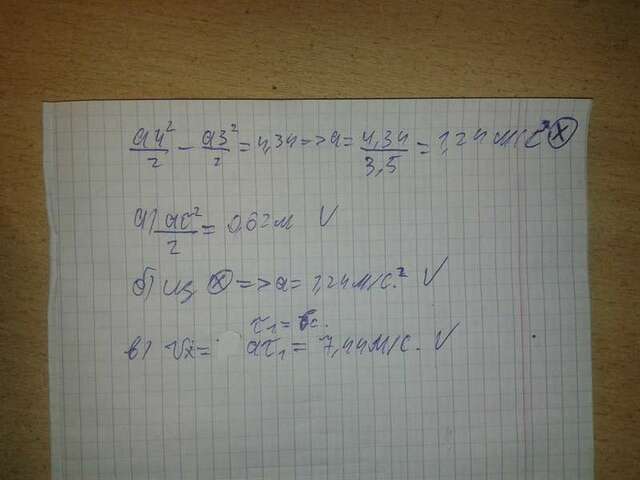 a4²/2 − a3²/2 = 4,34 => a = 4,34/3,5 = 1,24 м/с² ⊗
а) aτ²/2 = 0,62 м V
б) из ⊗ => a = 1,24 м/с² V
τ₁ = 6с.
в) Vₓ = aτ₁ = 7,44 м/с. V